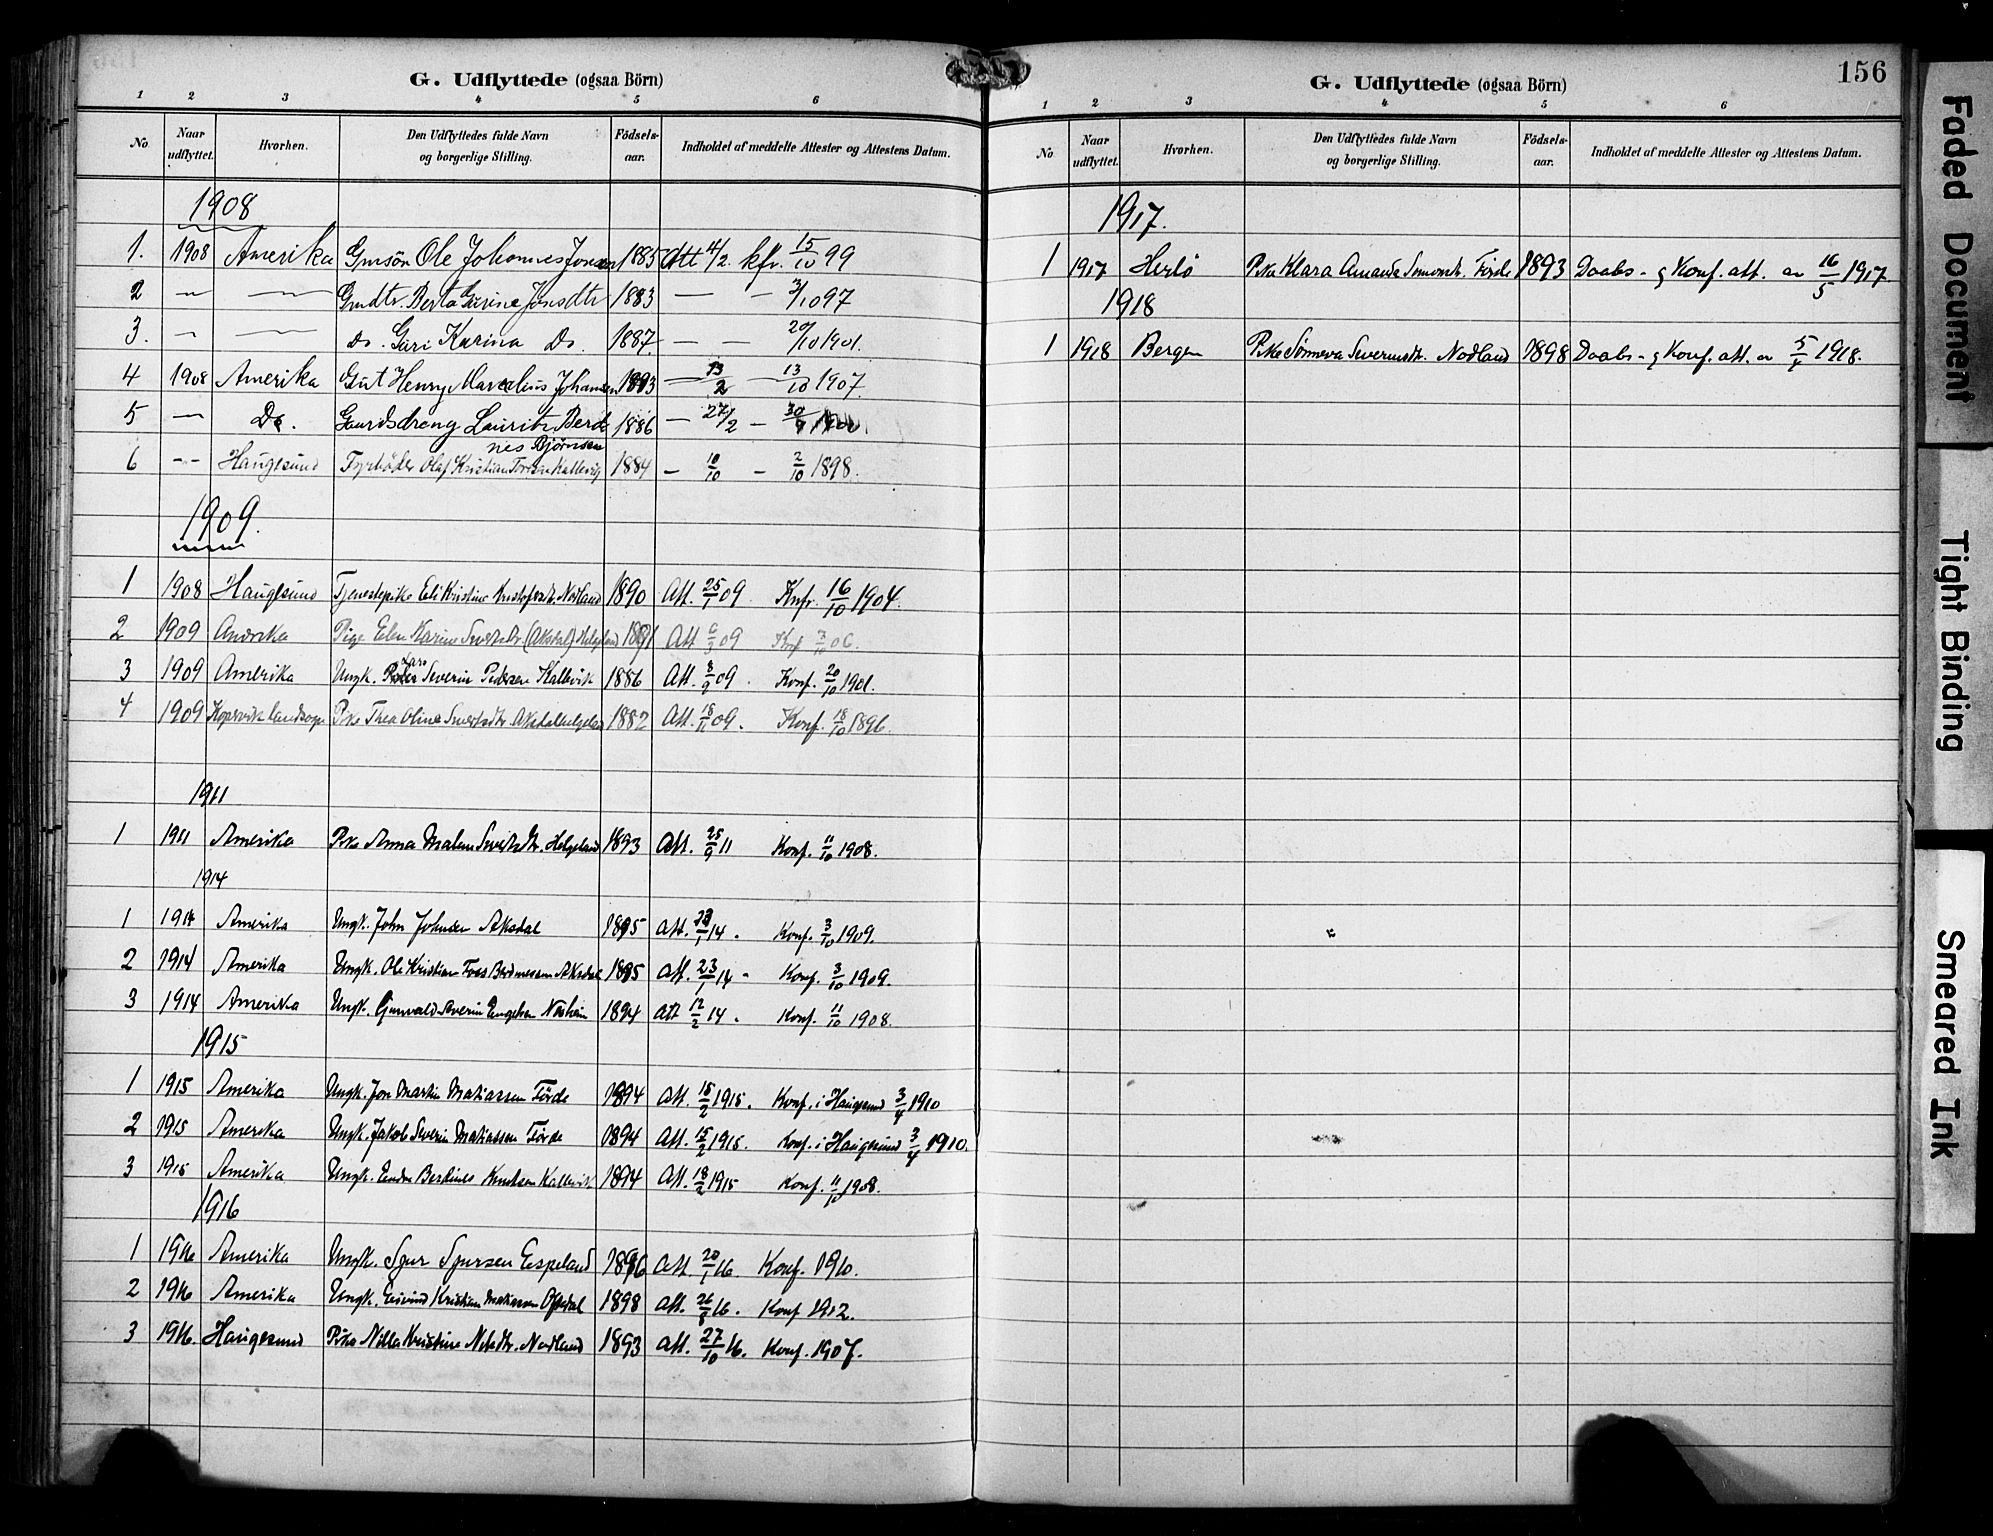 G. Udflyttede (ogsaa Börn)
1 2 3 4 5 6
No Naar udflyttet. Hvorhen. Den Udflyttedes fulde Navn og borgerlige Stilling. Födsels-aar. Indholdet af meddelte Attester og Attestens Datum.
1908
1. 1908 Amerika Gmsön Ole Johannes Jonsen 1885 Att 4/2. kfr. 15/10 99
2 — — Gmdtr. Berta Gurine Jonsdtr 1883 — — 3/10 97
3. — — Do. Guri Karina Do. 1887. — — 20/10 1901.
4 1908 Amerika Gut Henry Marcelius Johansen 1893 — 13/2 — 13/10 1907.
5 — Do. Gaardsdreng Laurits Berd- 1886 — 27/2 — 30/9
nes Bjørnsen
6 -- Haugesund Fyrbøder Olaf Kristian Kallevig 1884 — 10/10 — 2/10 1898.
1909.
1 1908 Haugesund Tjenestepike Eli Kristine Kristofersdtr. Nodland 1890 Att. 25/1 09 Knfr. 16/10 1904.
2 1909 Amerika Pige Elen Karine (Aksdal) Helgeland 1891 Att 6/3 09 Knf 7/10 06.
3 1909 Amerika Ungk. Lars Severin Pedersen Kallevik 1886 Att. 8/9 09. Konf. 20/10 1901.
4 1909 Kopervik landsogn Pike Thea Oline 1882 Att. 18/11 09. Konf. 18/10 1896.
1911
1 1911 Amerika Pike Anna Malene Helgeland 1893 Att. 25/9 11 Konf. 11/10 1908.
1914
1 1914 Amerika Ungk. John Johnsen Aksdal 1895 Att. 23/1 14. Konf. 3/10 1909.
2 1914 Amerika Ungk. Ole Kristian Aksdal 1895 Att. 23/1 14 - Konf. 3/10 1909.
3 1914 Amerika Ungk. Gunvald Severin Engelsen 1894 Att 12/2 14. Konf. 11/10 1908.
1915
1 1915 Amerika Ungk. Jon Martin Matiassen Förde 1894 Att. 15/2 1915. Konf. i Haugesund 3/4 1910
2 1915 Amerika Ungk. Jakob Severin Matiassen Förde 1894 Att. 15/2 1915. Konf. i Haugesund 3/4 1910.
3 1915 Amerika Ungk. Endre Berdines Knutsen Kallevik 1894 Att. 18/2 1915 Konf. 11/10 1908.
1916
1 1916 Amerika Ungk. Sjur Sjursen Espeland 1896 Att. 20/1 16. Konf. 1910.
2 1916 Amerika Ungk. Eivind Kristian Matiassen 1898 Att. 26/8 16. Konf 1912.
3 1916. Haugesund Pike Nilla Kristine Nilsdtr. Nodland 1893 Att. 27/10 16. Konf. 1907.
156
G. Udflyttede (ogsaa Börn)
1 2 3 4 5 6
No Naar udflyttet. Hvorhen. Den Udflyttedes fulde Navn og borgerlige Stilling. Födsels-aar. Indholdet af meddelte Attester og Attestens Datum.
1917.
1 1917 Herlö Pike Klara Amanda Simonsdtr. Förde 1893 Daabs- og Konf. att. av 16/5 1917.
1918
1 1918 Bergen Pike Sönneva Severinsdtr. Nodland 1898 Daabs- og Konf. att. av 5/ 1918.
Faded Document
Tight Binding
Smeared Ink